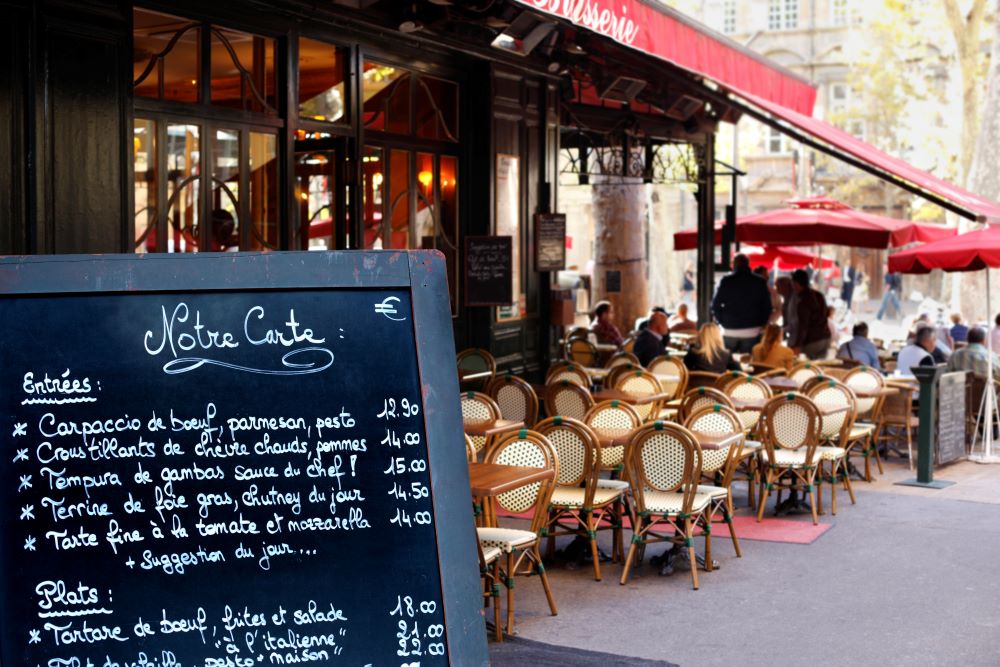 Brasserie
Notre Carte : €
Entrées :
* Carpaccio de boeuf, parmesan, pesto 12.90
* Croustillants de chèvre chauds, pommes 14.00
* Tempura de gambas sauce du chef ! 15.00
* Terrine de foie gras, chutney du jour 14.50
* Tarte fine à la tomate et mozzarella 14.00
+ Suggestion du jour....
Plats :
* Tartare de boeuf, frites et salade 18.00
"à l'italienne" 21.00
pesto "maison" 22.00